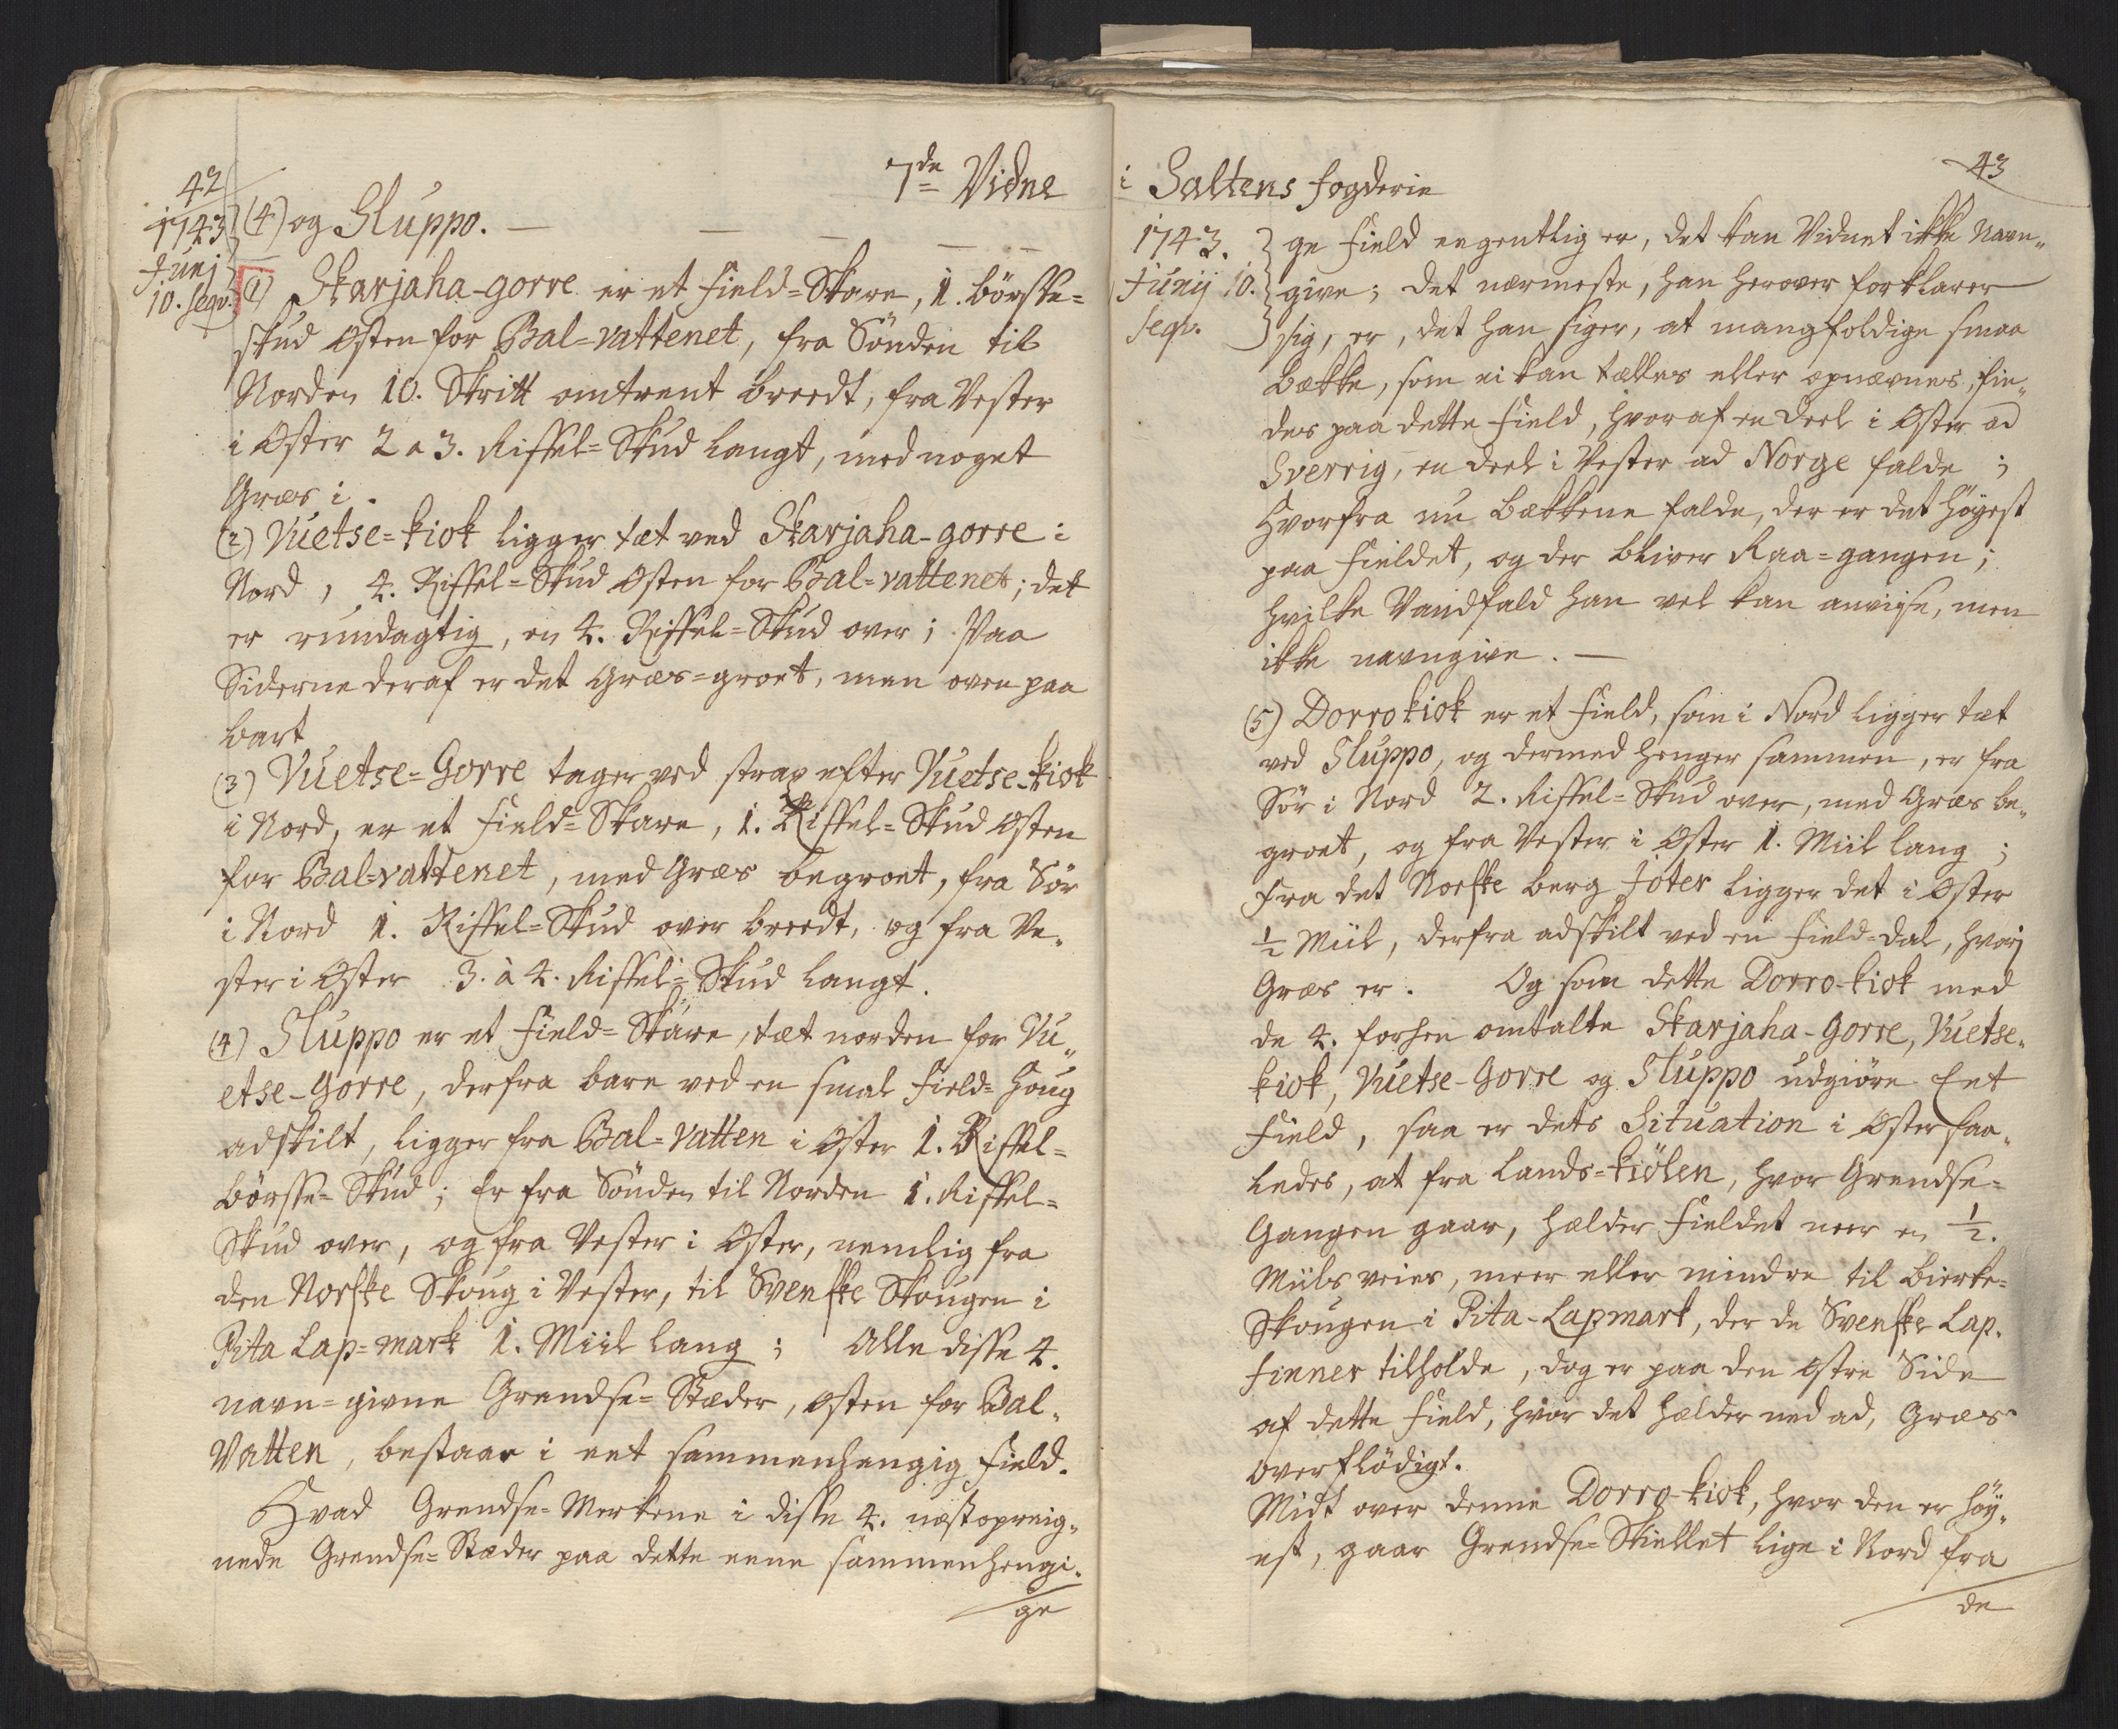 42
7de Vidne
1743
Junj
10. seqv.
(4) og Sluppo. —
(1) Skarjaha-gorre er et Field-Skare, 1. börsse-
skud Østen for Bal-vattenet, fra Sönden til
Norden 10. Skritt omtrent breedt, fra Vester
i Øster 2 a 3. Riffel-Skud langt, med noget
Græs i.
(2) Vuetse-kiok ligger tæt ved Skarjaha-gorre i
Nord, 4. Riffel-Skud Østen for Bal-vattenet; det
er rundagtig, en 4. Riffel-Skud over; Paa
Siderne deraf er det Græs-groet, men oven paa
bart
(3) Vuetse-Gorre tager ved strax efter Vuetse-kiok
i Nord, er et Field-Skare, 1. Riffel-Skud Østen
for Bal-vattenet, med Græs begroet, fra Sör
i Nord 1. Riffel-Skud over breedt, og fra Ve-
ster i Øster 3. à 4. Riffel-Skud langt.
(4) Sluppo er et Field-Skare, tæt norden for Vu-
etse-Gorre, derfra bare ved en smal Field-Houg
adskilt, ligger fra Bal-Vatten i Øster 1. Riffel-
börsse-Skud; Er fra Sönden til Norden 1. Riffel-
Skud over, og fra Vester i Øster, nemlig fra
den Norske Skoug i Vester, til Svenske Skougen i
Pita Lap-mark 1. Miil lang; Alle disse 4.
navn-givne Grendse-Stæder, Østen for Bal-
Vatten, bestaar i eet sammenhengig Field.
Hvad Grendse-Merkene i disse 4. næstopreig-
nede Grendse-Stæder paa dette eene sammenhengi-
ge
43
i Saltens fogderie
1743.
Junij 10.
seqv.
ge Field egentlig er, det kan Vidnet ikke Navn-
give; det nærmeste, han herover forklarer
sig, er, det han siger, at mangfoldige smaa
Bække, som ei kan tælles eller opnævnes, fin-
des paa dette Field, hvoraf en deel i Øster ad
Sverrig, en deel i Vester ad Norge falde;
Hvorfra nu Bækkene falde, der er det Höyest
paa Fieldet, og der bliver Raa-gangen;
hvilke Vandfald han vel kan anviise, men
ikke navngive. —
(5) Dorrokiok er et Field, som i Nord ligger tæt
ved Sluppo, og dermed henger sammen, er fra
Sör i Nord 2. Riffel-Skud over, med Græs be-
groet, og fra Vester i Øster 1. Miil lang;
Fra det Norske berg Joter ligger det i Øster
1/2 Miil, derfra adskilt ved en Field-dal, hvorj
Græs er. Og som dette Dorro-kiok med
de 4. forhen omtalte Skarjaha-Gorre, Vuetse-
kiok, Vuetse-Gorre og Sluppo udgiöre Eet
Field, saa er dets Situation i Øster saa-
ledes, at fra Lands-kiölen, hvor Grendse-
Gangen gaar, hælder Fieldet neer en 1/2.
Miils veies, meer eller mindre til Bierke-
Skougen i Pita-Lapmark, der de Svenske Lap-
Finner tilholde, dog er paa den Østre Side
af dette Field, hvor det hælder ned ad, Græs
overflödigt.
Midt over denne Dorro-kiok, hvor den er höy-
est, gaar Grendse-Skiellet lige i Nord fra
de